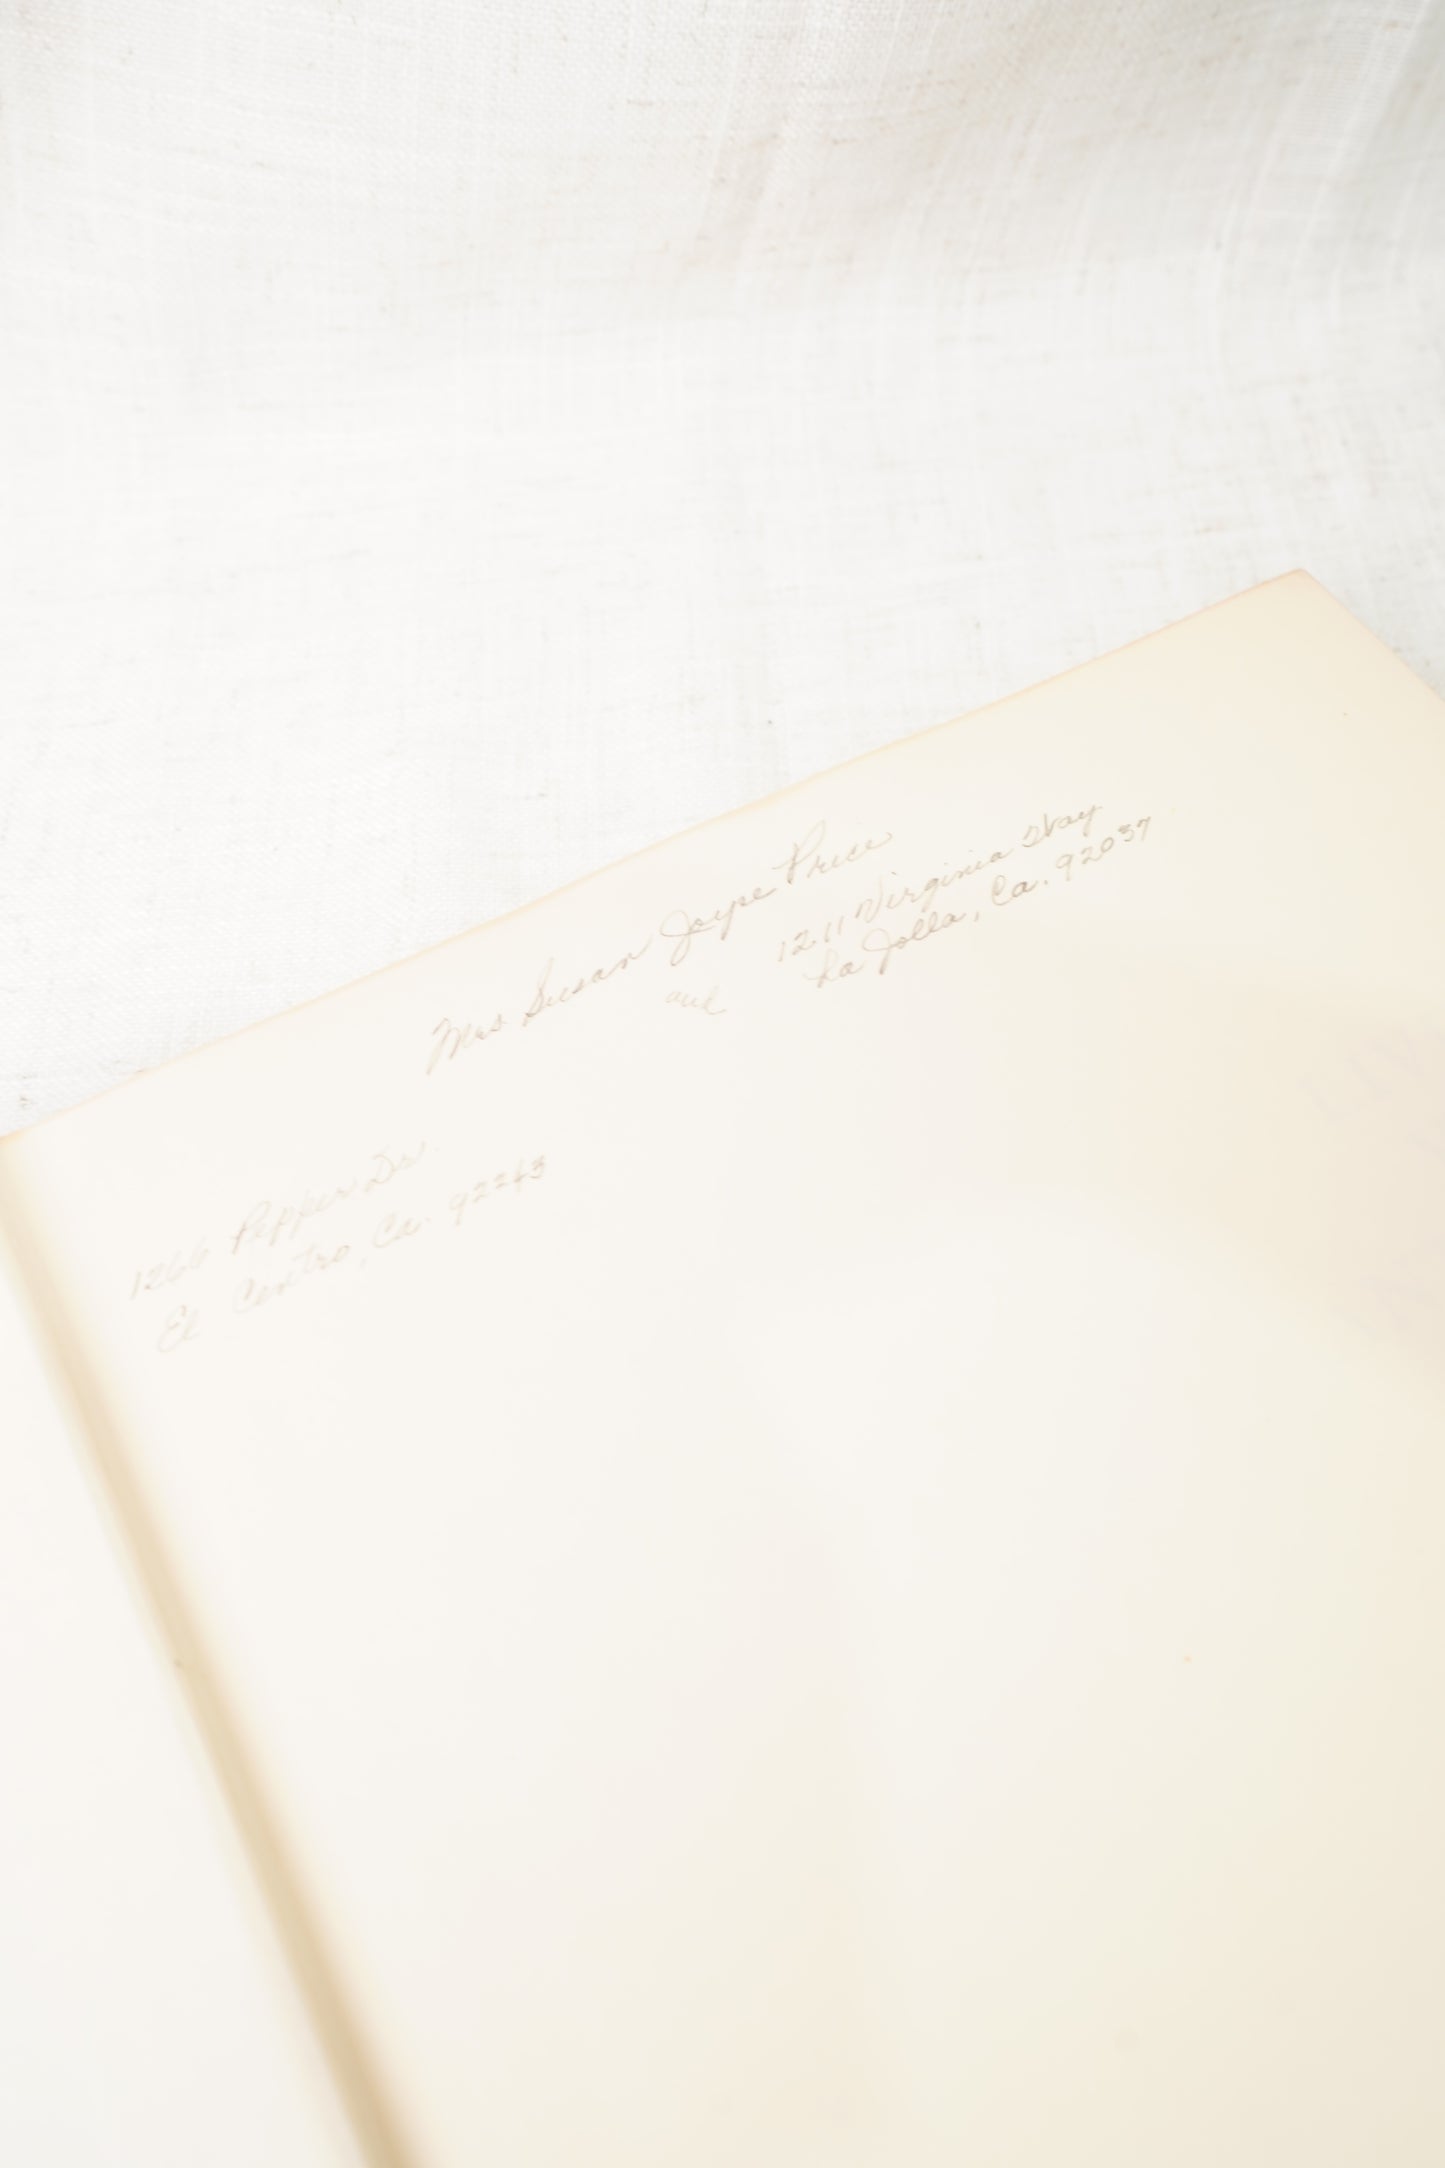 Mrs Susan Joype Price
1211 Virginia Way
and
La Jolla, Ca. 92037
1266 Pepper Dr.
El Centro, Ca. 92243